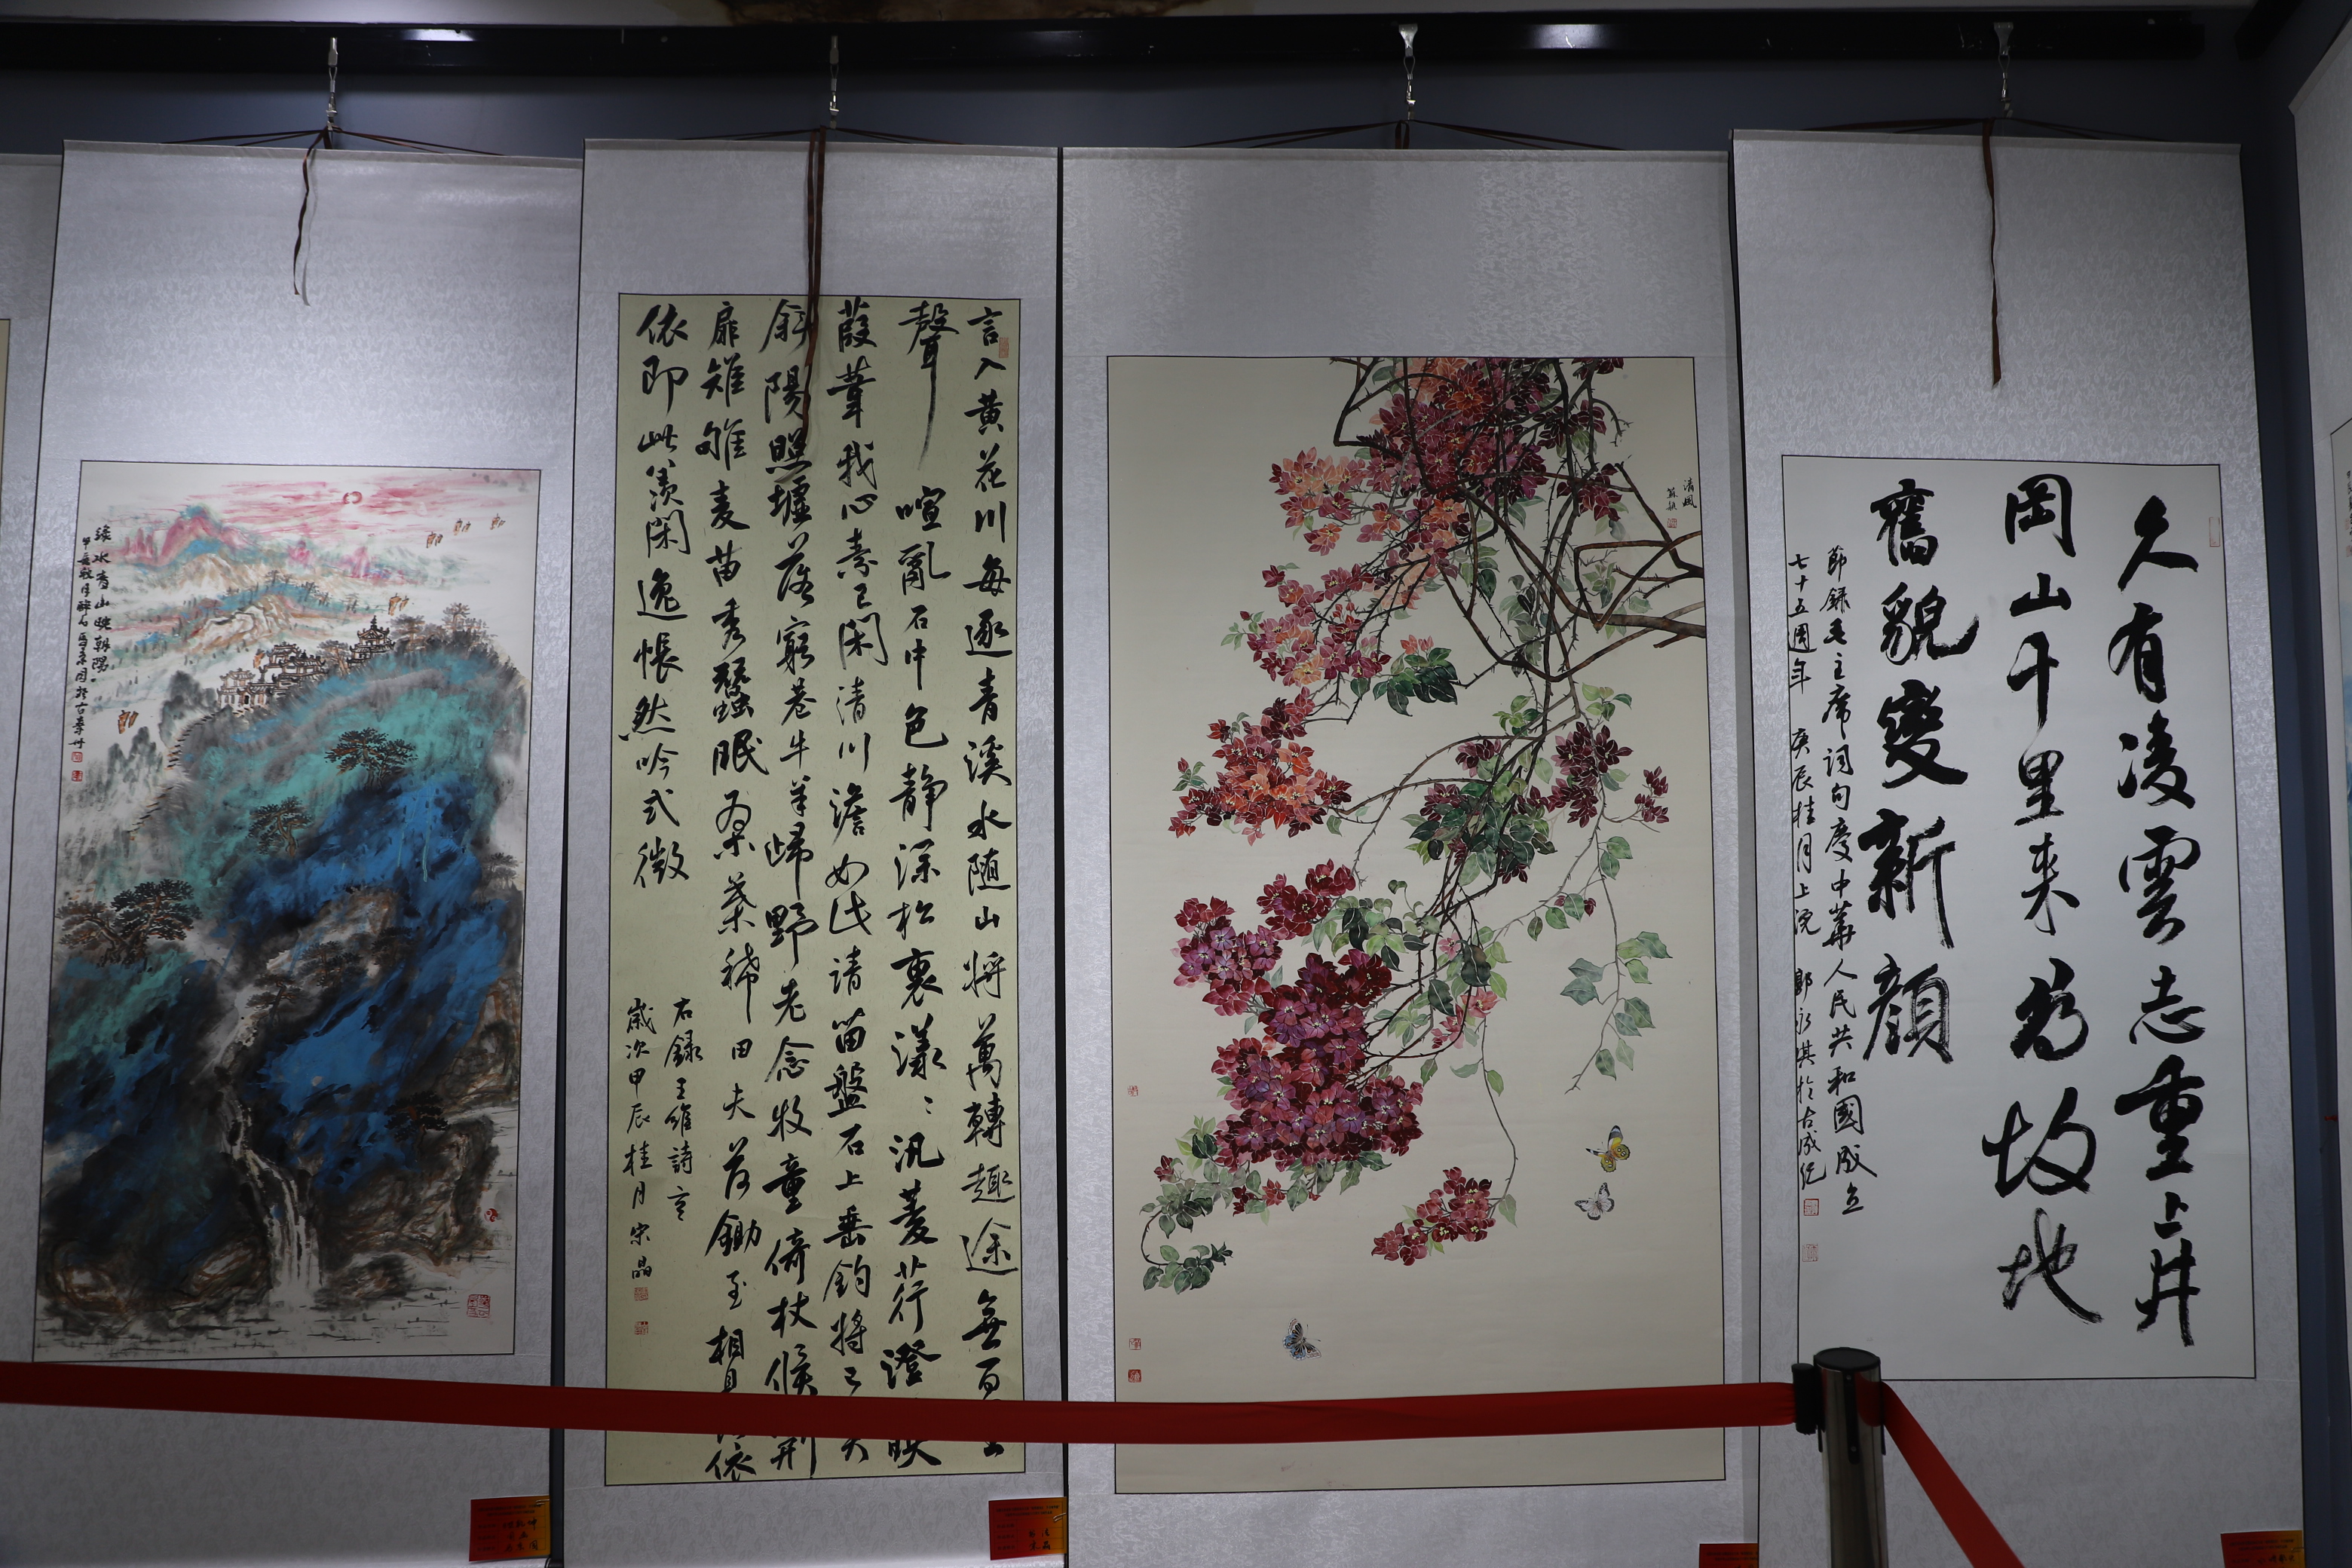 綠水青山映朝陽
甲辰秋月醉石
言入黄花川每逐青溪水随山将萬轉趣途無百
聲喧亂石中色静深松裏漾〻汎菱荇澄映
葭葦我心素已閑清川澹如此請留盤石上垂釣将已矣
斜陽照墟落窮巷牛羊歸野老念牧童倚杖候荆
扉雉雊麦苗秀蠶眠桑葉稀田夫荷鋤至相見依
依即此羡閑逸悵然吟式微
右録王維詩
歲次甲辰桂月宋晶
清風
久有凌雲志重上井
岡山千里来為故地
舊貌變新顔
節録毛主席詞句慶中華人民共和國成立
七十五周年 庚辰桂月上浣 永淇於古成紀